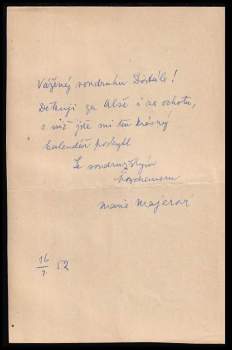 Vážený soudruhu Dostále!
Děkuji za Vaše i za ochotu,
s níž jste mi ten krásný
Kalendář poskytl
Se soudružským
pozdravem
Marie Majerová
16/7 52